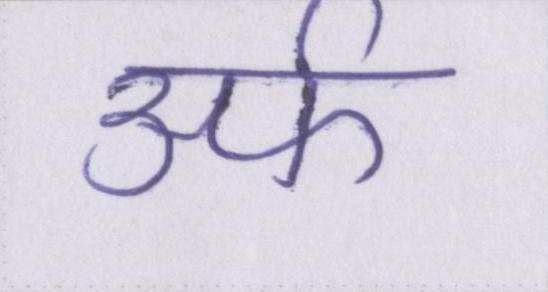 उर्फ